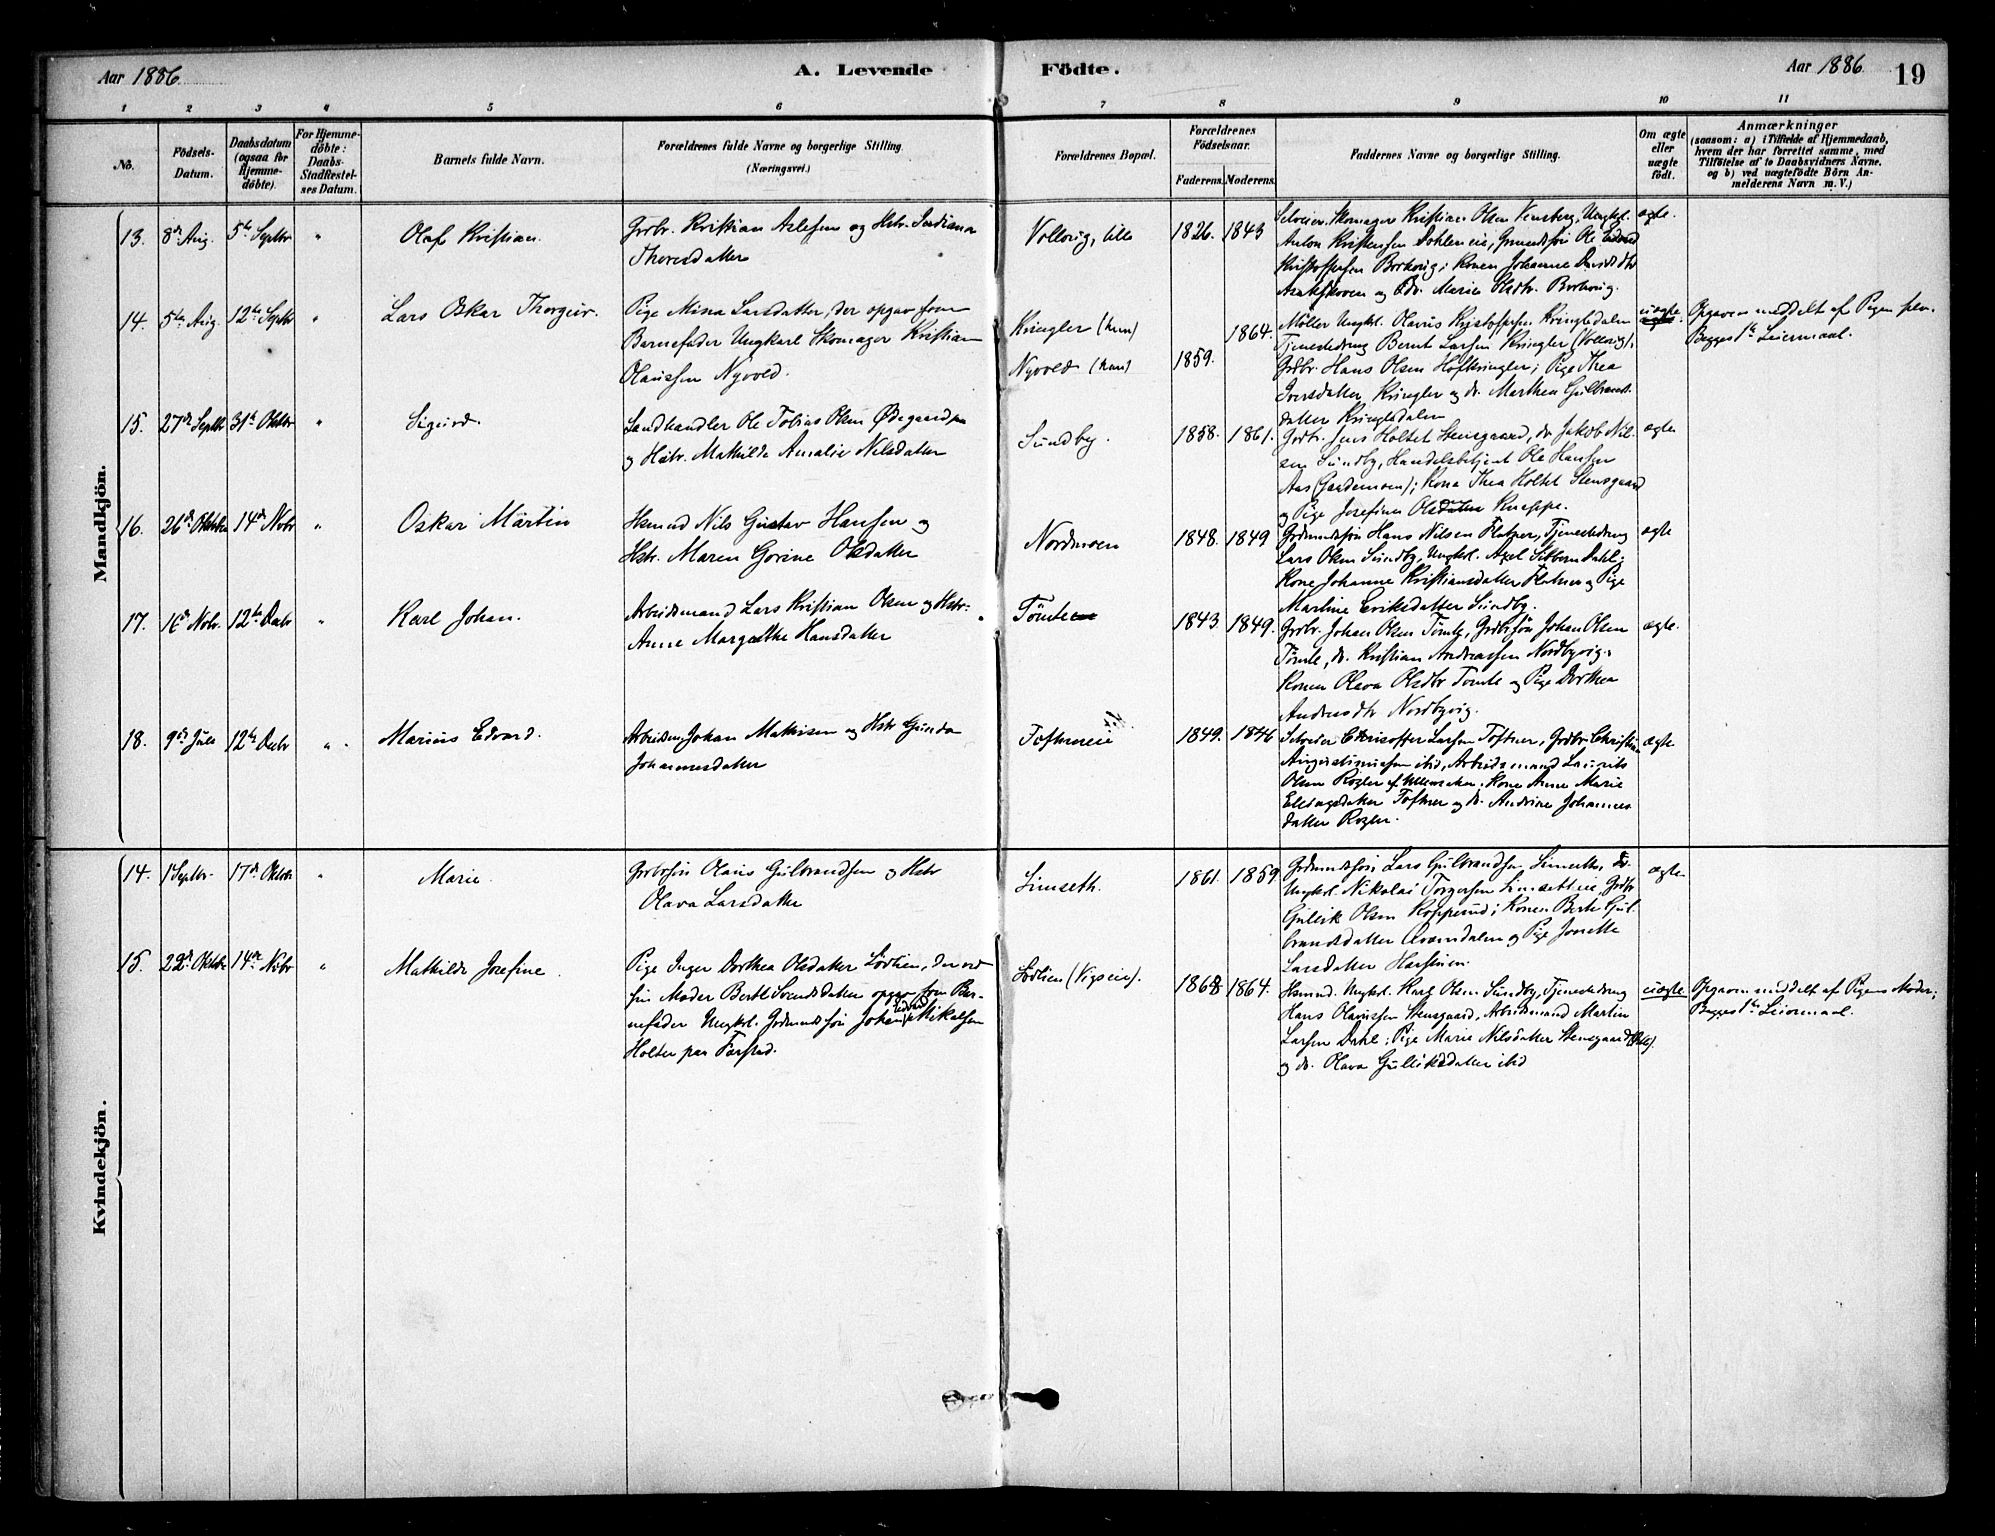 Aar 1886.
A. Levende
Födte.
Aar 1886.
19
1 2 3 4 5 6 7 8 9 10 11
No.
Födsels-
Datum.
Daabsdatum
(ogsaa for
Hjemme-
döbte).
For Hjemme-
döbte:
Daabs-
Stadfæstel-
ses Datum.
Barnets fulde Navn.
Forældrenes fulde Navne og borgerlige Stilling
(Næringsvei.)
Forældrenes Bopæl.
Forældrenes
Födselsaar.
Faderens. Moderens.
Faddernes Navne og borgerlige Stilling.
Om ægte
eller
uægte
födt.
Anmærkninger
(saasom: a) i Tilfælde af Hjemmedaab,
hvem der har forrettet samme, med
Tilföielse af to Daabsvidners Navne.
og b) ved uægtefödte Börn An-
melderens Navn m. V.)
Mandkjön.
13. 8de Aug. 5te Septbr " Olaf Kristian.
Grbr. Kristian Aslesen og Hstr.
Thoresdatter
Vollorig, lille
1826. 1843
Selveier. Skomager Kristian Olsen Vensberg, Ungkl.
Anton Kristensen Dahleneie, Ole Edvard
Kristoffersen Borkerig; Konen Johanne
og Marie Olsdtr. Borkerig.
ægte.
14. 5te Aug. 12te Septbr " Lars Oskar Thorgeir.
Pige Mina Larsdatter, der opgav som
Barnefader Ungkarl Skomager Kristian
Olaussen Nyvold.
Kringler (hun)
Nyvold (han)
1859. 1864.
Möller Ungkl. Olavus Kristoffersen Kringledalen
Tjenestedreng Bernt Larsen Kringler (Vollorig),
Grdbr. Hans Olsen Hofkringler; Pige Thea
Iversdatter Kringler og do. Marthea Gulbrands-
datter Kringledalen
uægte
Opgaven meddelt af Pigen selv.
Begges 1ste Leiermaal.
15. 27de Septbr 31te Oktbr " Sigurd.
Landhandler Ole Tobias Olsen Ødegaarden
og Hstr. Mathilde Amalie Nilsdatter
Sundby.
1858. 1861.
Grdbr. Jens Holtet Stensgaard, do. Jakob Nil-
sen Sundby, Handelsbetjent Ole Hansen
Aas (Gardemoen); Kone Thea Holtet Stensgaard
og Pige Josefine Olsdatter Kneppe.
ægte
16. 26de Oktbr 14de Novbr " Oskar Martin
Hsmnd Nils Gustav Hansen og
Hstr. Maren Gorine Olsdatter
Nordmoen
1848. 1849
Grdmandssön Hans Nilsen Flatner, Tjenestedreng
Lars Olsen Sundby, Ungkl. Axel Dahl;
Kone Johanne Kristiansdatter Flatner og Pige
Martine Eriksdatter Sundby.
ægte
17. 16de Novbr. 12te Decbr " Karl Johan.
Arbeidsmand Lars Kristian Olsen og Hstr.
Anne Margrethe Hansdatter
Tömte
1843 1849.
Grdbr. Johan Olsen Tömte, Grdbrsön Johan Olsen
Tömte, do. Kristian Andreassen Nordbyvig;
Konen Olava Olsdtr Tömte og Pige Dorthea
Andreasdtr Nordbyvig.
ægte.
18. 9de Juli 12te Decbr " Marius Edvard.
Arbeidsm. Johan Mathisen og Hstr Gunda
Johannesdatter
Toftnereie
1849. 1846
Selveier Christoffer Larsen Toftner, Grdbr. Christian
Augustinussen ibid, Arbeidsmand Laurits
Olsen Rogler af Ullensaker. Kone Anne Marie
Ellingsdatter Toftner og do. Andrine Johannes-
datter Rogler.
ægte
Kvindekjön.
14. 1 Septbr. 17de Oktbr " Marie.
Grdbrsön Olaus Gulbrandsen og Hstr
Olava Larsdatter
Linseth.
1861. 1859
Grdmandssön Lars Gulbrandsen do.
Ungkl. Nikolai Torgersen Grdbr
Gullik Olsen Kopperud; Konen Berte Gul-
brandsdatter og Pige Jonette
Larsdatter
ægte
15. 22de Oktbr 14de Novbr " Mathilde Josefine.
Pige Inger Dorthea Olsdatter Lödlien, der ved
sin Moder Berthe Svendsdatter opgav som Bar-
nefader Ungkl. Grdmandssön Johan Edvard Mikalsen
Holter paa Farstad.
Lödlien (Vigseie).
1868 1864.
Hsmnd. Ungkl. Karl Olsen Sundby, Tjenestedreng
Hans Olaussen Stensgaard, Arbeidsmand Martin
Larsen Dahl; Pige Marie Nilsdatter Stensgaard
og do. Olava Gulliksdatter ibid
uægte
Opgaven meddelt af Pigens Moder;
Begges 1ste Leiermaal.